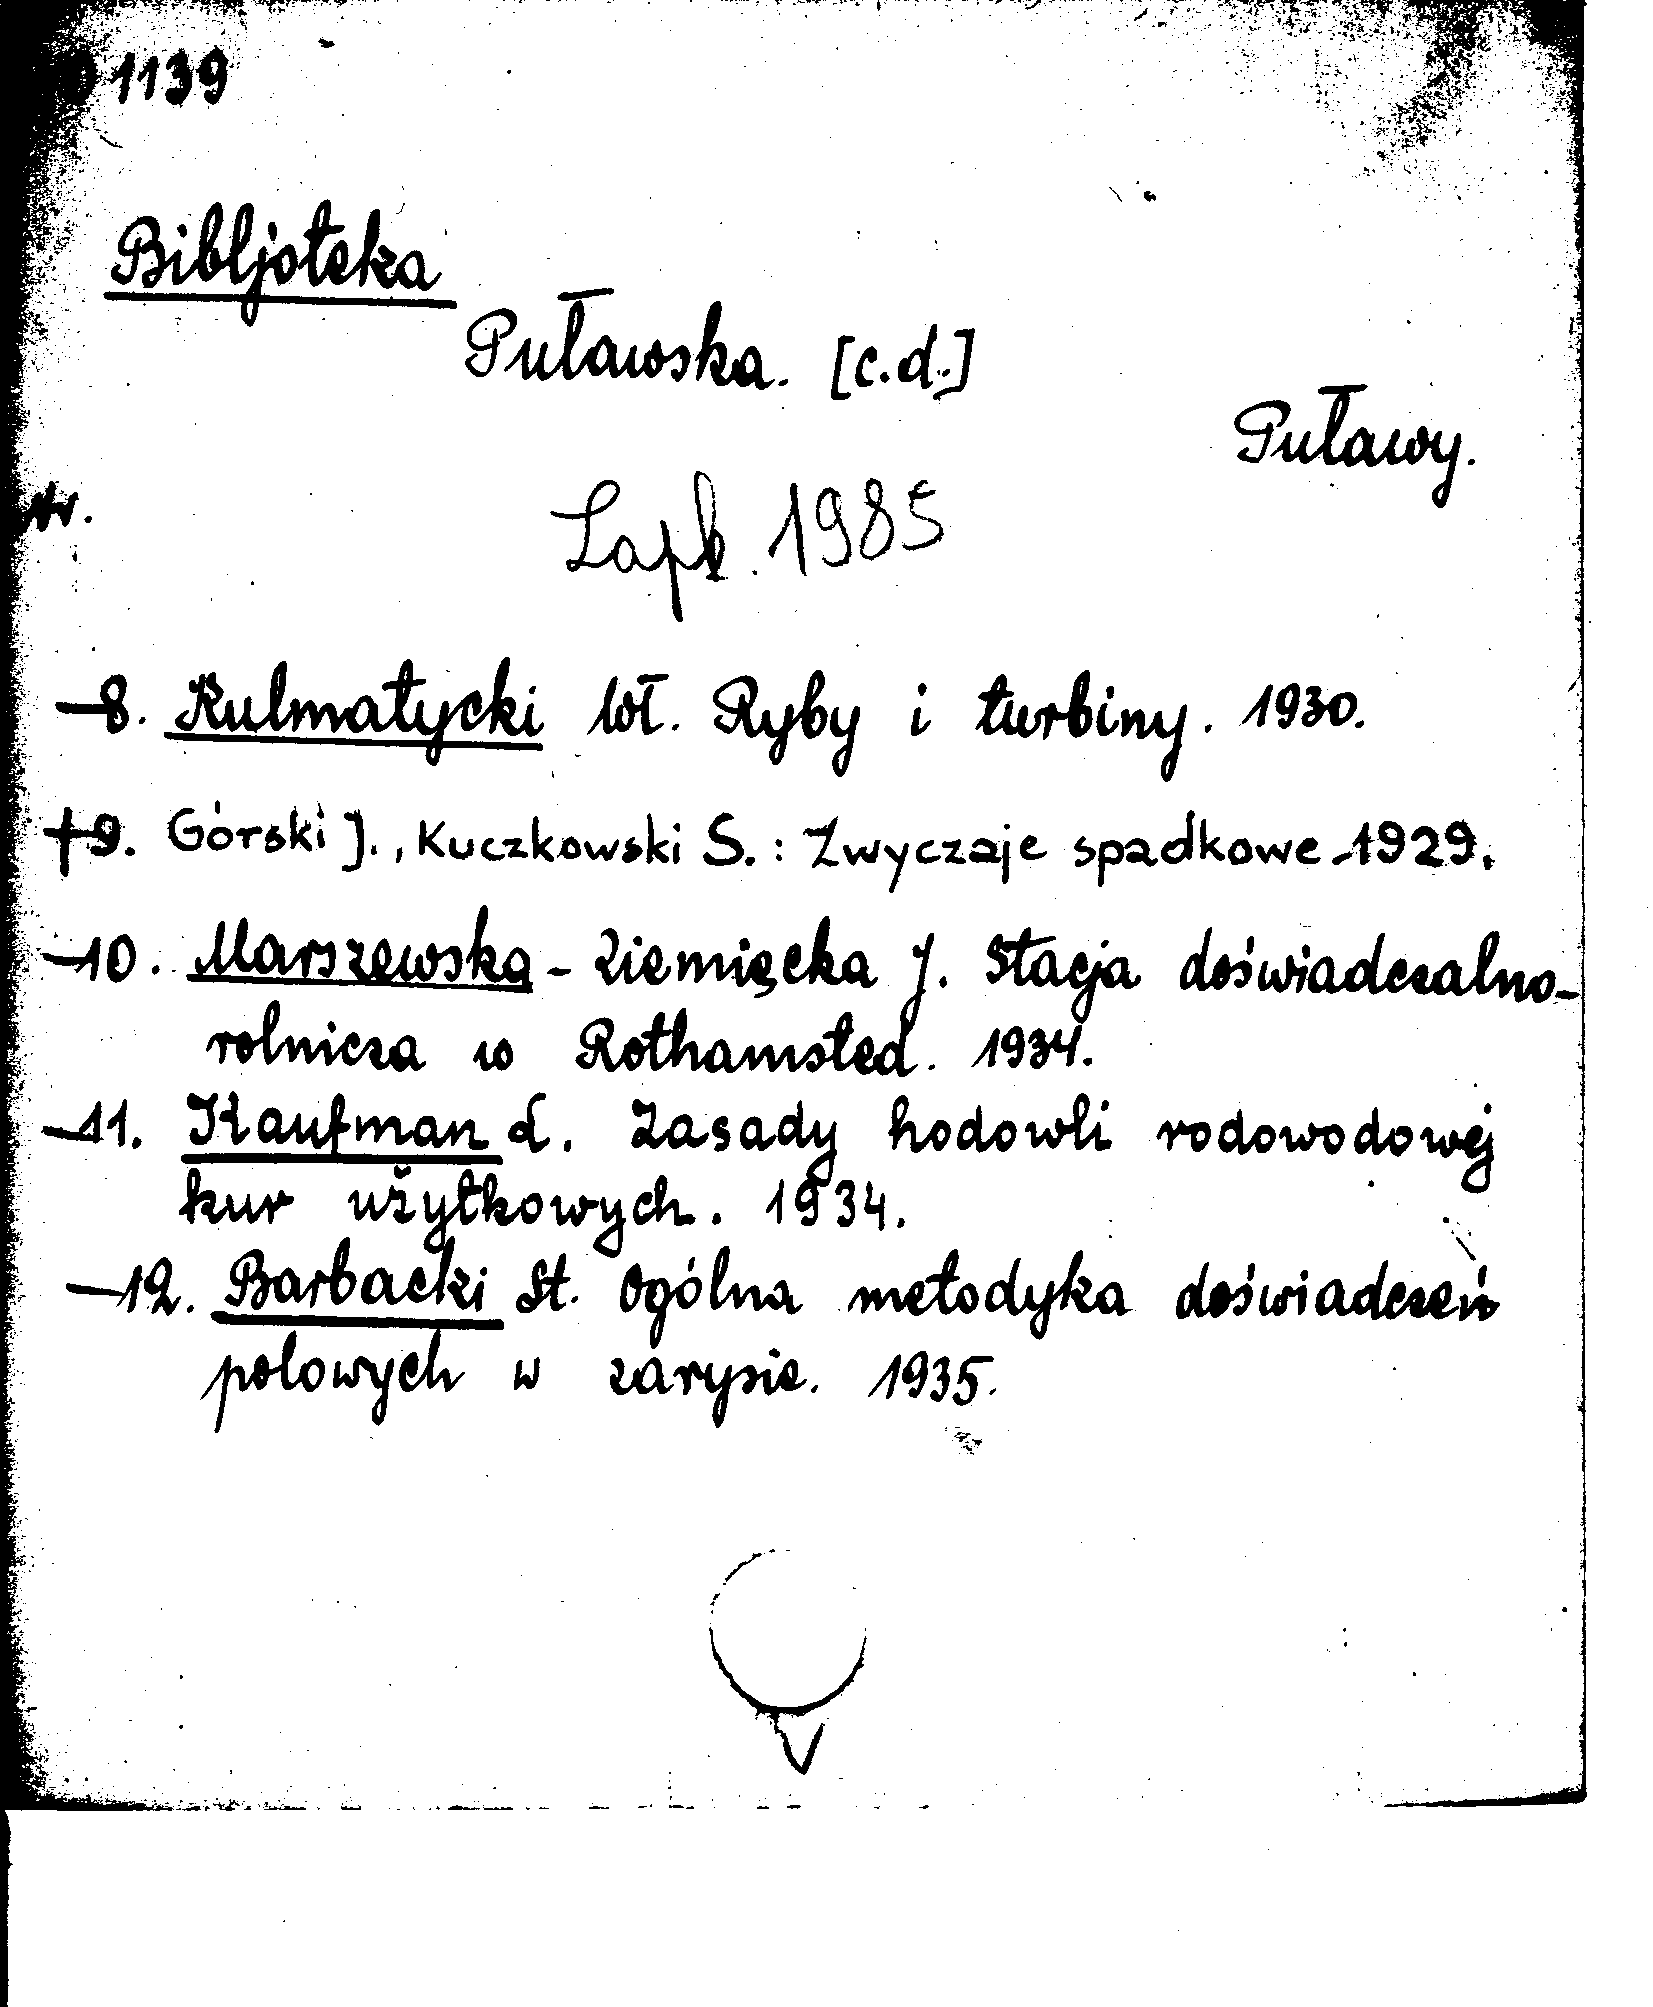 1139
Bibljoteka
Puławska. [c.d.]
Puławy.
1985
8. Kulmatycki Wł. Ryby i turbiny. 1930.
9. Górski J., Kuczkowski S. : Zwyczaje spadkowe 1929.
10. Marszewska - Ziemięcka J. Stacja doświadczalno-
rolnicza w Rothamsted. 1934.
11. Kaufman L. Zasady hodowli rodowodowej
kur użytkowych. 1934.
12. Barbacki St. Ogólna metodyka doświadczeń
polowych w zarysie. 1935.